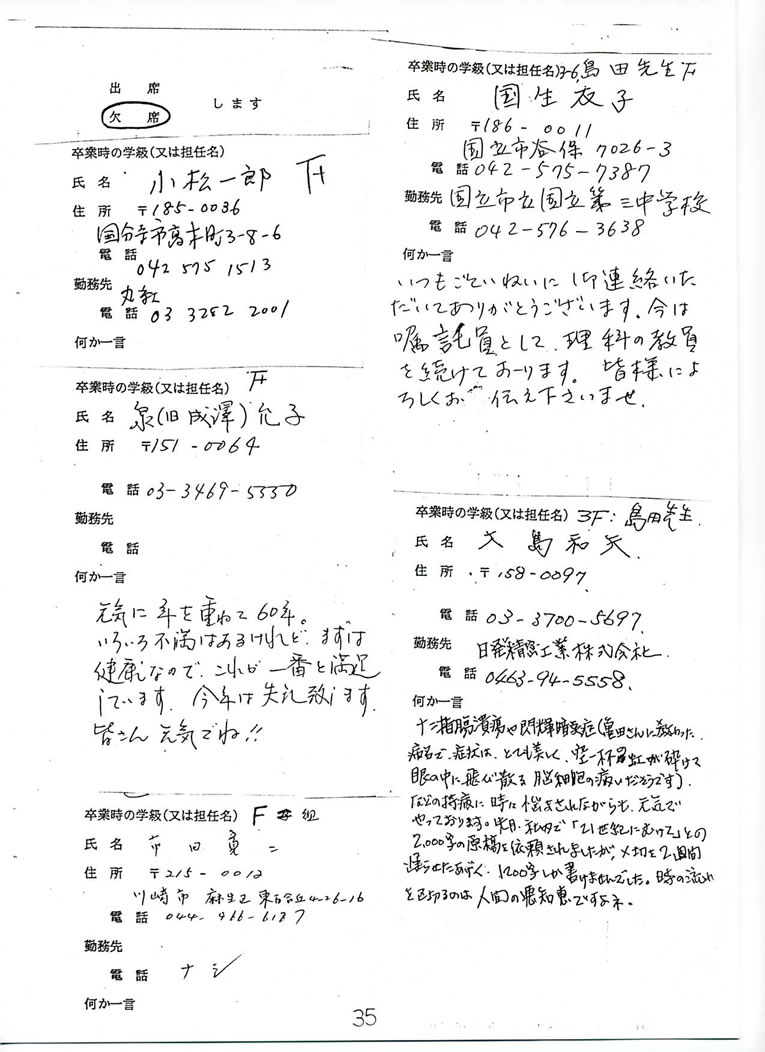 出席
欠席
します
卒業時の学級(又は担任名)
氏名 小松一郎 F
住所 〒185-0036
国分寺市高木町3-8-6
電話
042 575 1513
勤務先
丸紅
電話 03 3282 2001
何か一言
卒業時の学級(又は担任名) F
氏名 泉(旧成澤)允子
住所 〒151-0064
電話 03-3469-5330
勤務先
電話
何か一言
元気に年を重ねて60年。
いろいろ不満はあるけれど、まずは
健康なので、これが一番と満足
しています。今年は失礼致します。
皆さん元気でね!!
卒業時の学級(又は担任名) F組
氏名 市田
住所 〒215-0012
川崎市 麻生区 東百合丘4-26-16
電話 044-966-6187
勤務先
電話 ナシ
何か一言
卒業時の学級(又は担任名)3-6,島田先生F
氏名 国生友子
住所 〒186-0011
国立市谷保7026-3
電話 042-575-7387
勤務先 国立市立国立第三中学校
電話 042-576-3638
何か一言
いつもごていねいに御連絡いた
だいてありがとうございます。今は
嘱託員として、理科の教員
を続けております。皆様によ
ろしくお伝え下さいませ。
卒業時の学級(又は担任名) 3F:島田先生
氏名 大島和矢
住所 〒158-0097
電話 03-3700-5697
勤務先 日発精密工業株式会社
電話 0463-94-5558
何か一言
十二指腸潰瘍や閃輝暗点症(亀田さんに教わった
病名で、症状は、とても美しく、空一杯の虹が砕けて
眼の中に飛び散る脳細胞の病いだそうです)
などの持病に時に悩まされながらも、元気で
やっております。先月、社内で「21世紀にむけて」との
2,000字の原稿を依頼されましたが、〆切を2週間
遅らせたあげく、1200字しか書けませんでした。時の流れ
を区切るのは人間の悪知恵ですよネ。
35